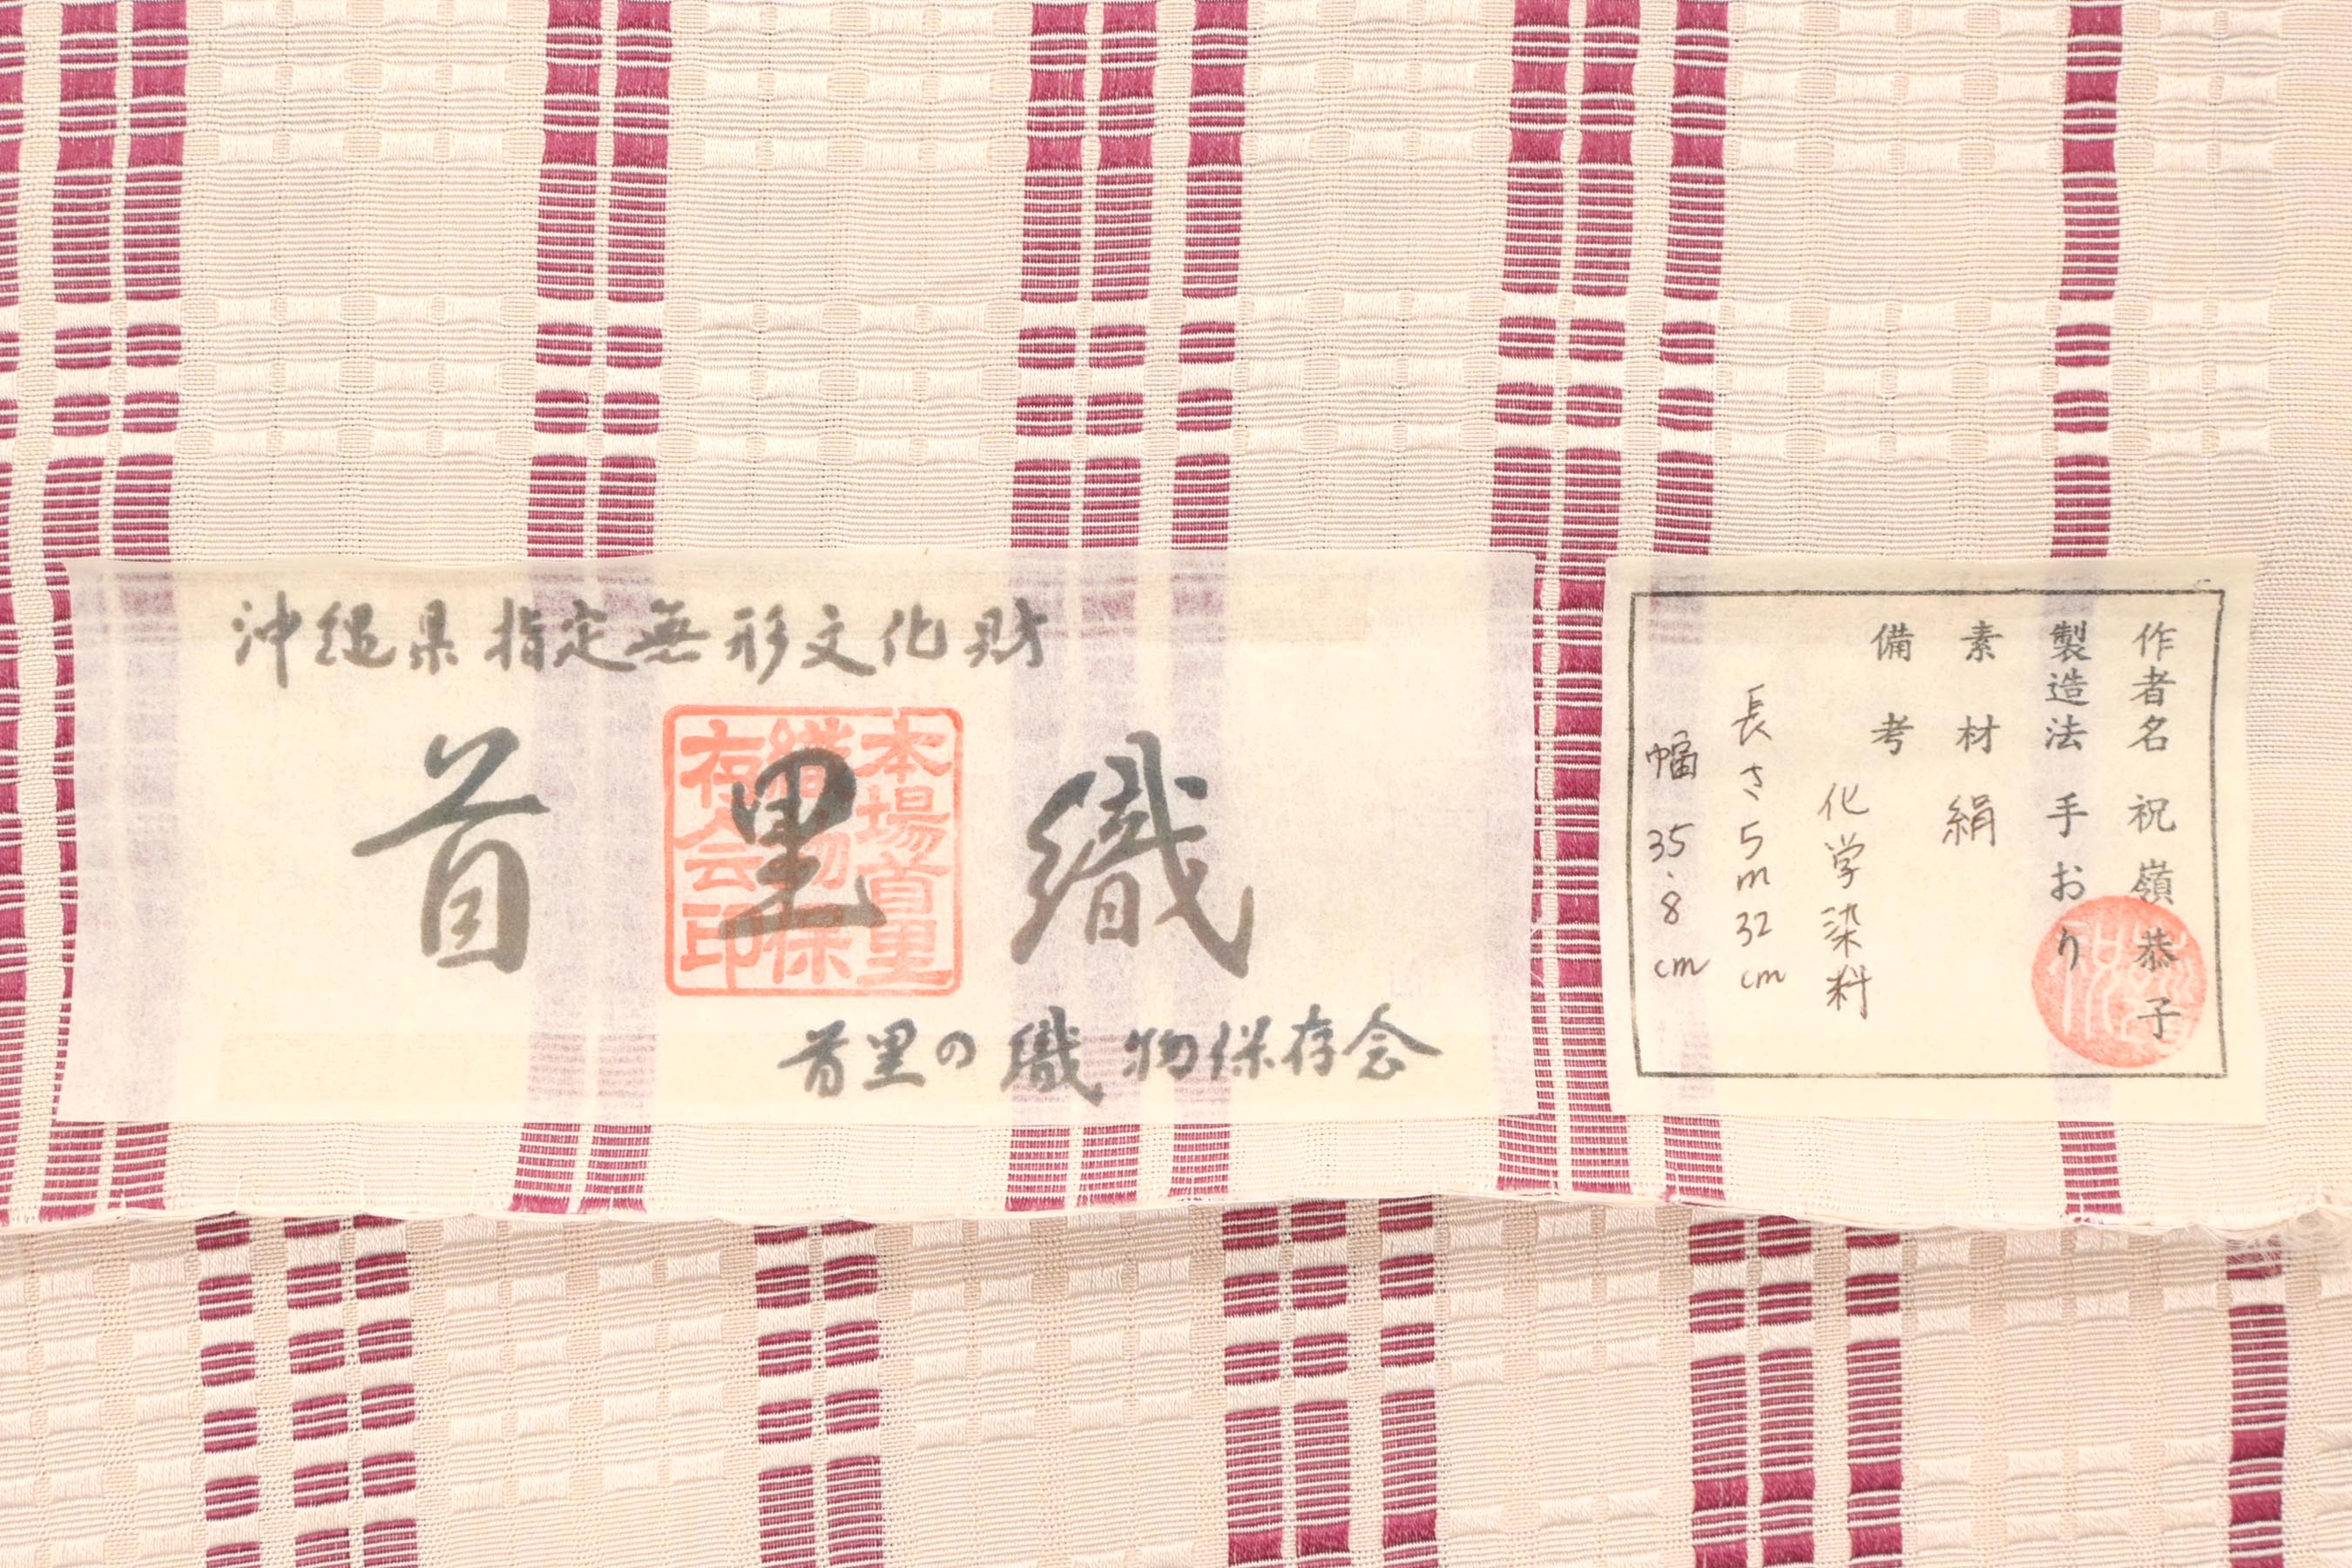 沖縄県指定無形文化財
首里織
本場首里
織物保
存会印
首里の織物保存会
作者名 祝嶺恭子
製造法 手おり
素材 絹
備考
化学染料
長さ5m32cm
幅 35.8cm